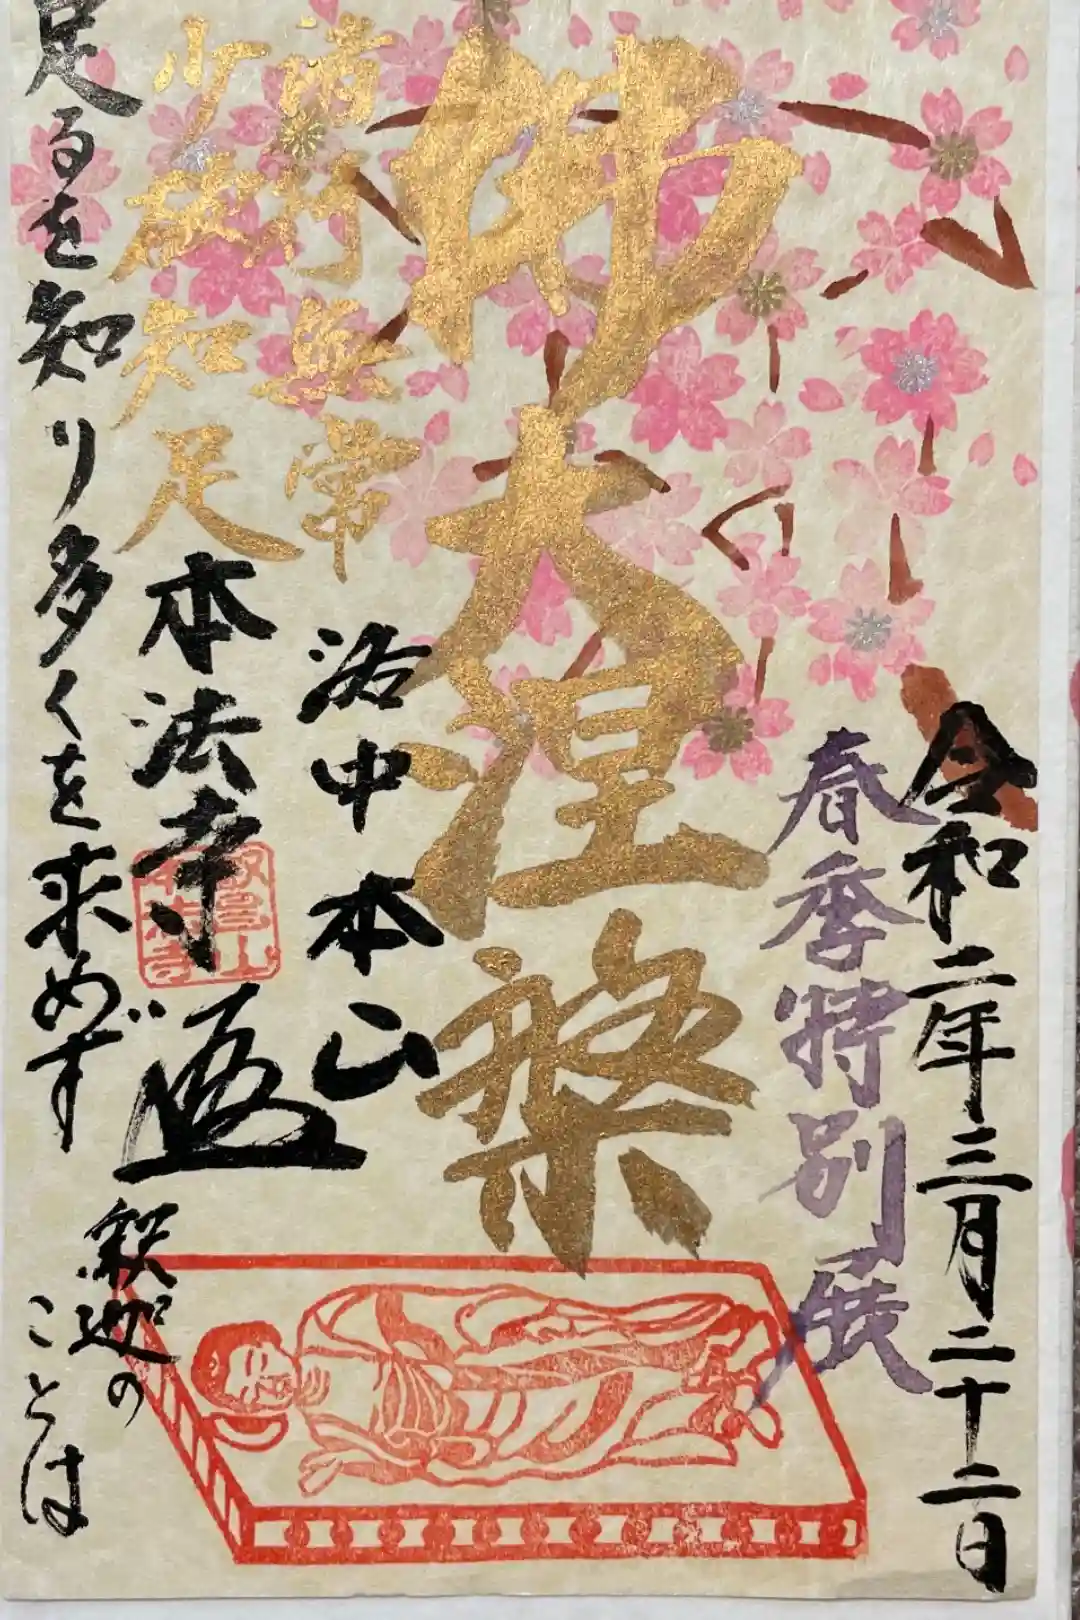 令和二年三月二十二日
春季特別展
佛大涅槃
諸行無常
少欲知足
洛中本山
本法寺
足るを知り多くを求めず
釈迦の
ことは